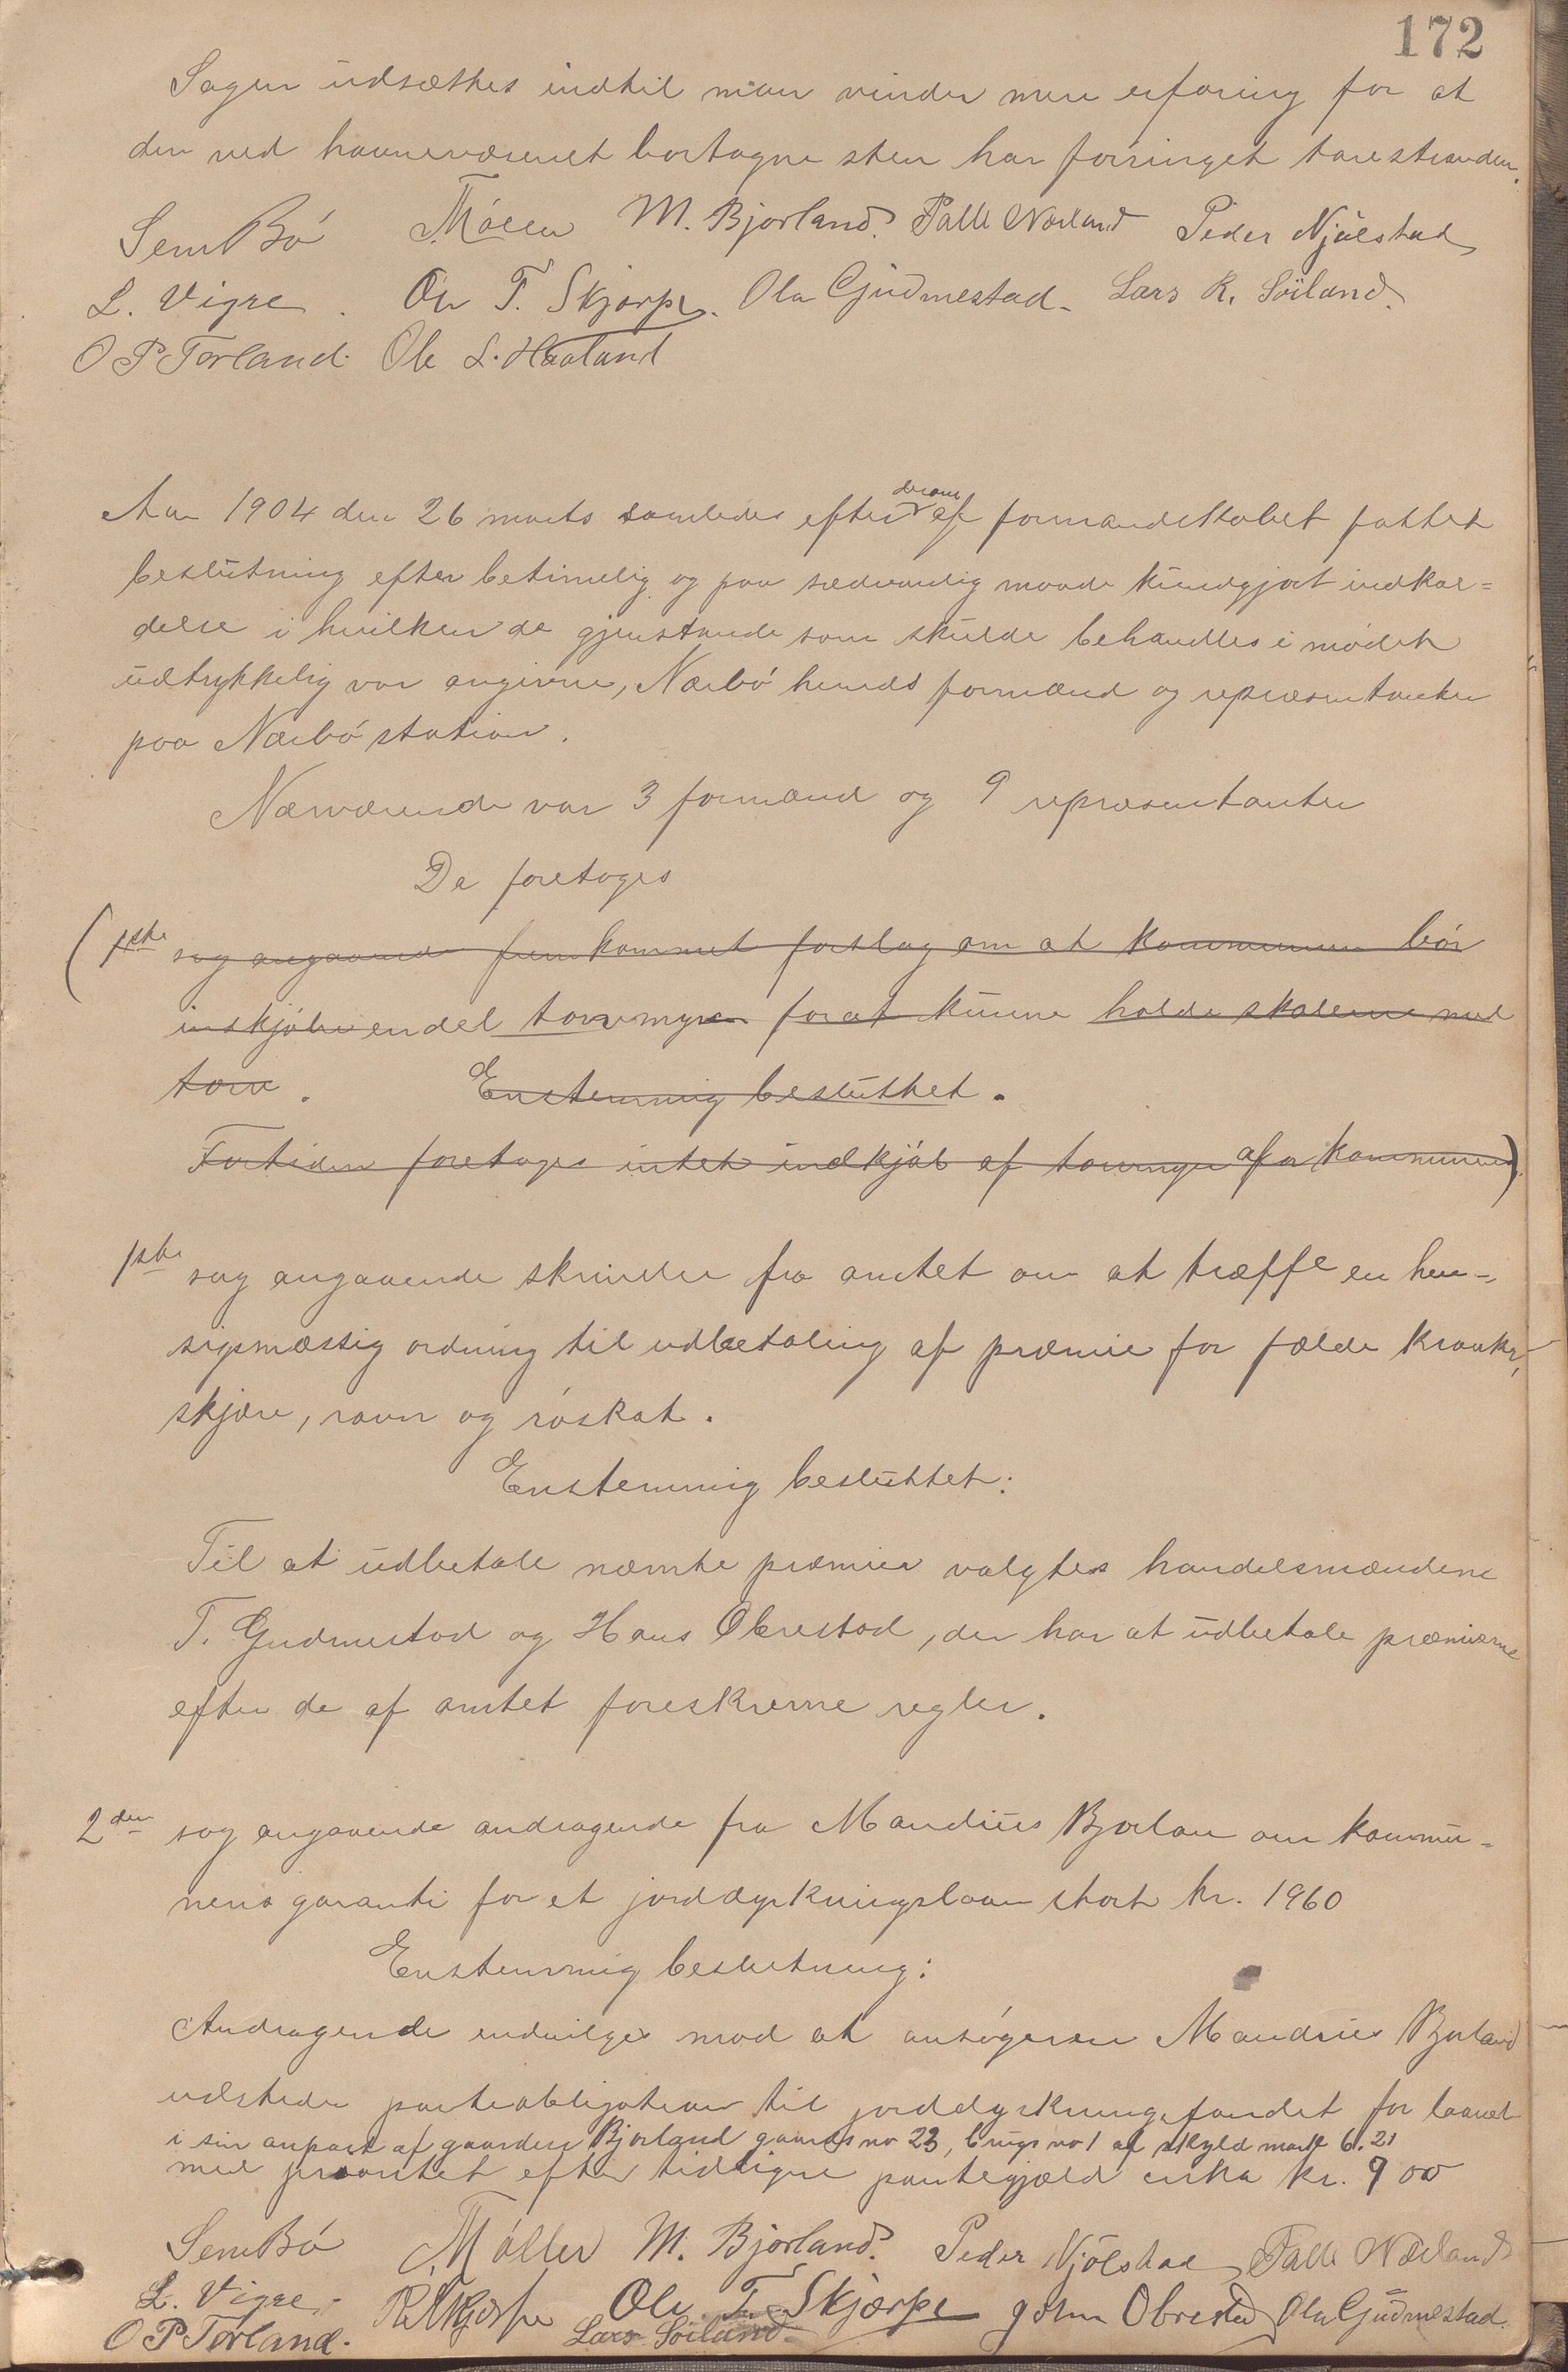 172
Sagen udsættes indtil man vinder mere erfaring for at
den ved havnevæsenet borttagne sten har forringet tarestranden.
Sem Bö Möller M. Bjorland. Palle Nærland Peder Njölstad
L. Vigre. Ole T. Skjærpe. Ola Gjudmestad. Lars R. Söiland.
O P Torland. Ole L. Haaland
Aar 1904 den 26 marts samledes efter derom af formandskabet fattet
beslutning efter betimelig og paa sædvanlig maade kundgjort indkal=
delse i hvilken de gjenstande som skulde behandles i mødet
udtrykkelig var angivne, Nærbö herreds formænd og repræsentanter
paa Nærbö station.
Nærværende var 3 formænd og 9 repræsentanter
De foretoges
(1ste sag angaaende fremkommet forslag om at kommunen bör
inskjöbe endel torvmyr for at kunne holde skolerne med
torv. Enstemmig besluttet.
Fortiden foretages intet indkjöb af torvmyr af kommunen)
1ste sag angaaende skrivelse fra amtet om at træffe en hen-
sigsmæssig ordning til udbetaling af præmie for fælde kraaker,
skjære, ravn og röskat.
Enstemmig besluttet:
Til at udbetale nævnte præmier valgtes handelsmændene
T. Gudmestad og Hans Obrestad, der har at udbetale præmierne
efter de af amtet foreskrevne regler.
2den sag angaaende andragende fra Mandius Bjorlan om kommu=
nens garanti for et jorddyrkningslaan stort kr. 1960
Enstemmig beslutning:
Andragende indvilges mod at ansögeren Mandius Bjorland
udsteder panteobligation til jorddyrkningsfondet for laanet
i sin anpart af gaarden Bjorland gaards no 23, brugs no 1 af skyld mark 6.21
med prioritet efter tidligere pantegjæld cirka kr. 900
Sem Bö Möller M. Bjorland. Peder Njölstad Palle Nærland
L. Vigre. R Skjærpe Ole T. Skjærpe John Obrestad Ola Gjudmestad.
O P Torland. Lars Söiland